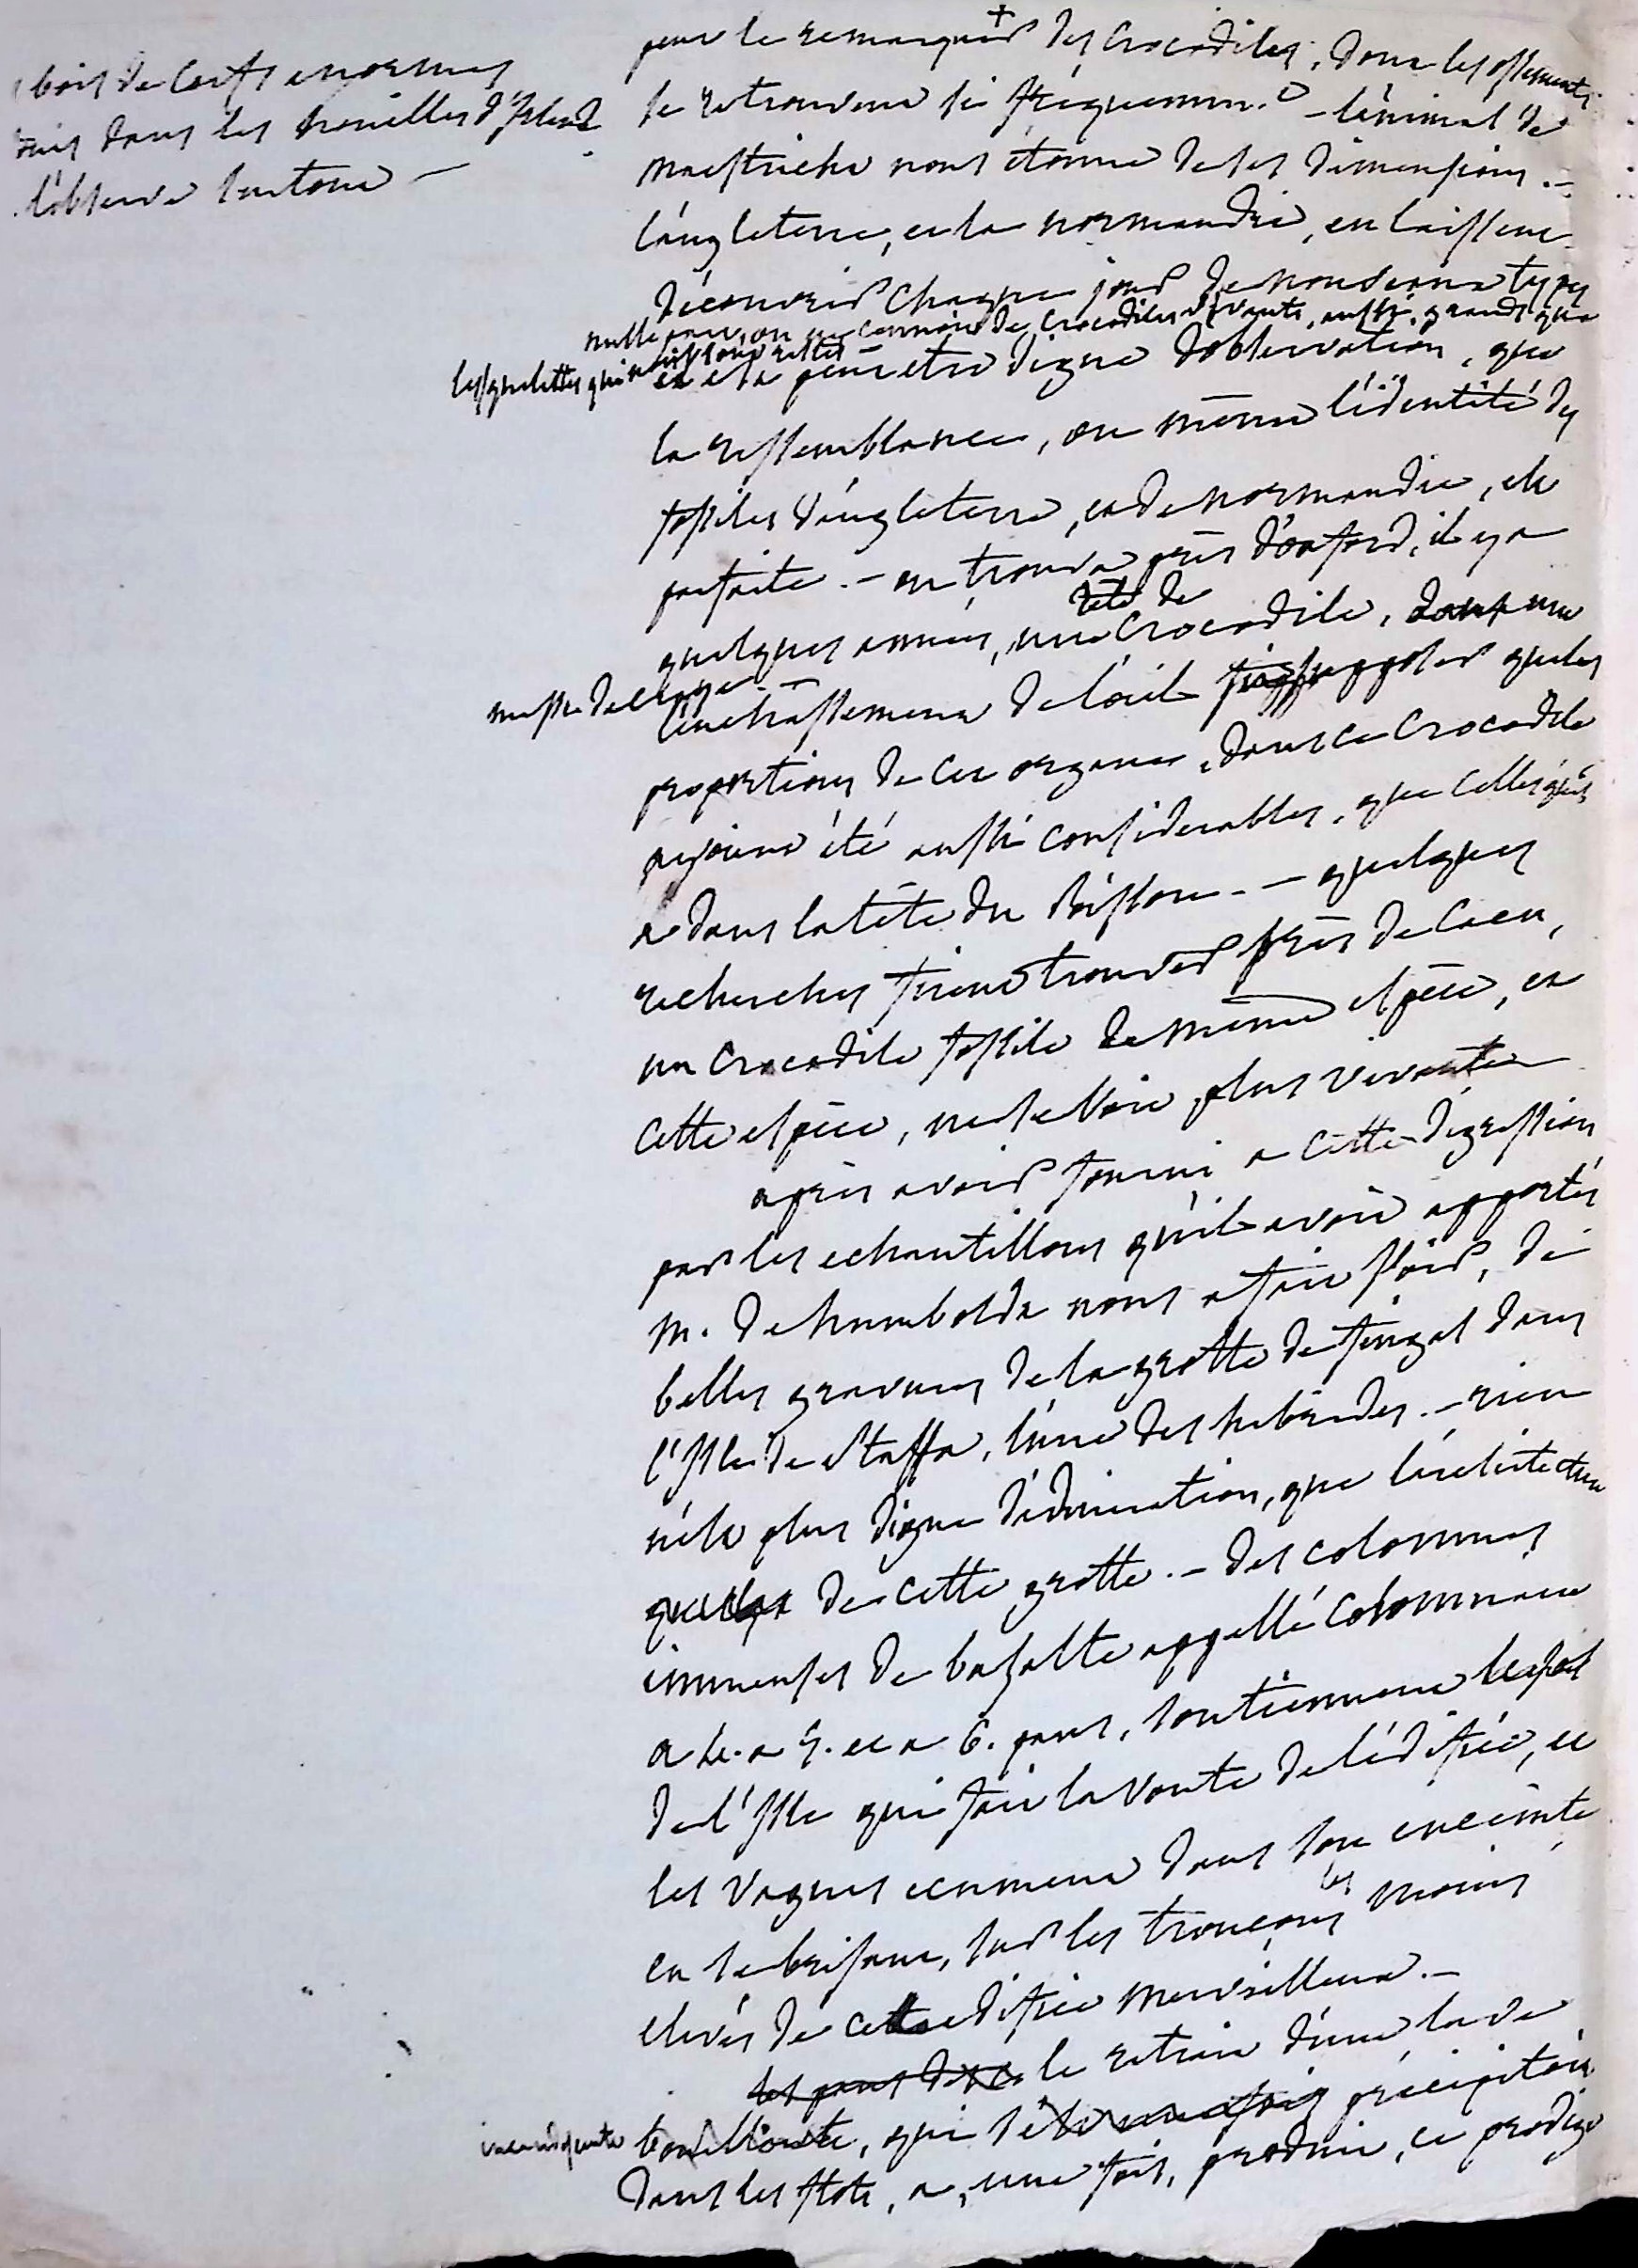 bois de Cerfs enormes
dans les tourbieres d'Irlande
l'observe surtout —
peut le remarquer + des Crocodiles, dont les ossements
se retrouvent si fréquemmt. – l'animal de
Maestricht nous étonne de ses dimensions. –
l'angleterre, et la normandie, en laissent
découvrir chaque jour de nouveaux types
nulle part, on ne connoit de Crocodiles vivants, aussi grands que
les squelettes qui nous sont restés –
et il est peut etre digne d'observation, que
la ressemblance, ou même l'identité des
fossiles d'angleterre, et de normandie, est
parfaite. – on trouva près d'oxford, il y a
quelques années, une tête de Crocodile, dont une
masse de
l'enchassement de l'oeil supposer que les
proportions de cet organe, dans ce Crocodile
ayant été aussi considerables, que celles qu'il
a dans la tête du poisson. – quelques
recherches firent trouver près de Caen,
un Crocodile fossile de même espèce, et
cette espèce, ne se voit plus vivante
après avoir fourni a cette digression
par les echantillons qu'il avoit apportés
M. de humboldt nous a fait voir, de
belles gravures de la grotte de fingal dans
l'Isle de Staffa, l'une des hebrides. – rien
n'est plus digne d'admiration, que l'architecture
de cette grotte. – des colonnes
immenses de basalte appellé Colomnaire
a 4. a 5. et a 6. pans, soutiennent le sol
de l'Isle qui fait la voute de l'édifice, et
les vagues ecument dans son enceinte
en se brisant, sur les tronçons les moins
elevés de cet edifice merveilleux. –
les pans de ce le retrait d'une lave
incandescente bouillante, qui s'est une fois précipitée
dans les flots, a, une fois, produit, ce prodige